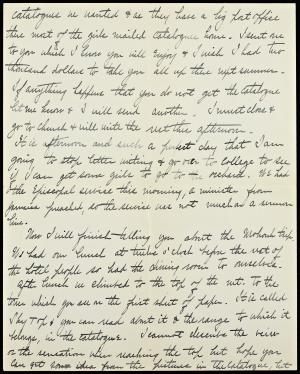 catalogues we wanted & as they have a big post office
there most of the girls mailed catalogues home. I sent one
to you which I know you will enjoy & I wish I had two
thousand dollars to take you all up there next summer.
If anything happens that you do not get the catalogue
let me know & I will send another. I must close &
go to church & will write the rest this afternoon.
It is afternoon and such a perfect day that I am
going to stop letter writing & go over to college to see
if I can get some girls to go to the orchard. We had
the Episcopal service this morning, a minister from
preached, so the service was not much on a sermon
line.
Now I will finish telling you about the Mohonk trip.
We had our lunch at twelve o'clock before the rest of
the hotel people so had the dining room to ourselves.
After lunch we climbed to the top of the mt. To the
tower which you see on the first sheet of paper. It is called
Sky Top & you can read about it & the range to which it
belongs, in the catalogue. I cannot describe the view
or the sensation when reaching the top but hope you
can get some idea from the pictures in the catalogue, but